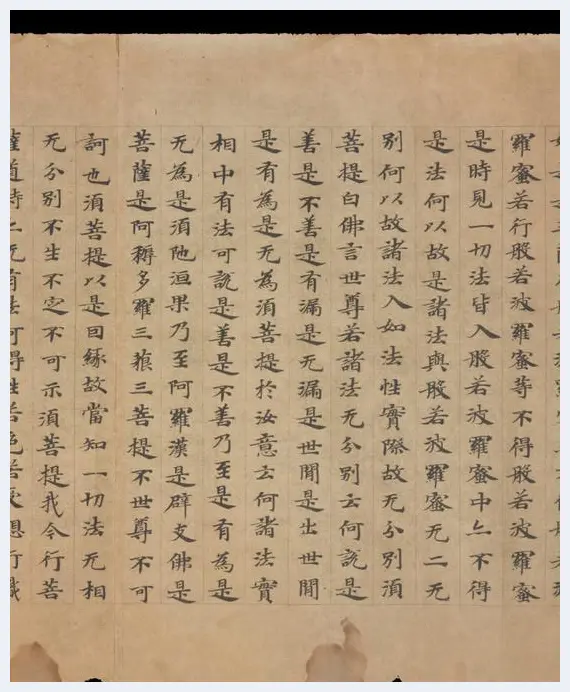 羅蜜若行般若波羅蜜等不得般若波羅蜜
是時見一切法皆入般若波羅蜜中亦不得
是法何以故是諸法與般若波羅蜜无二无
別何以故諸法入如法性實際故无分別須
菩提白佛言世尊若諸法无分別云何說是
善是不善是有漏是无漏是世閒是出世閒
是有為是无為須菩提於汝意云何諸法實
相中有法可說是善是不善乃至是有為是
无為是須陁洹果乃至阿羅漢是辟支佛是
菩薩是阿耨多羅三藐三菩提不世尊不可
訶也須菩提以是因緣故當知一切法无相
无分別不生不定不可示須菩提我今行菩
薩道時亦无有法可得性若色若受想行識